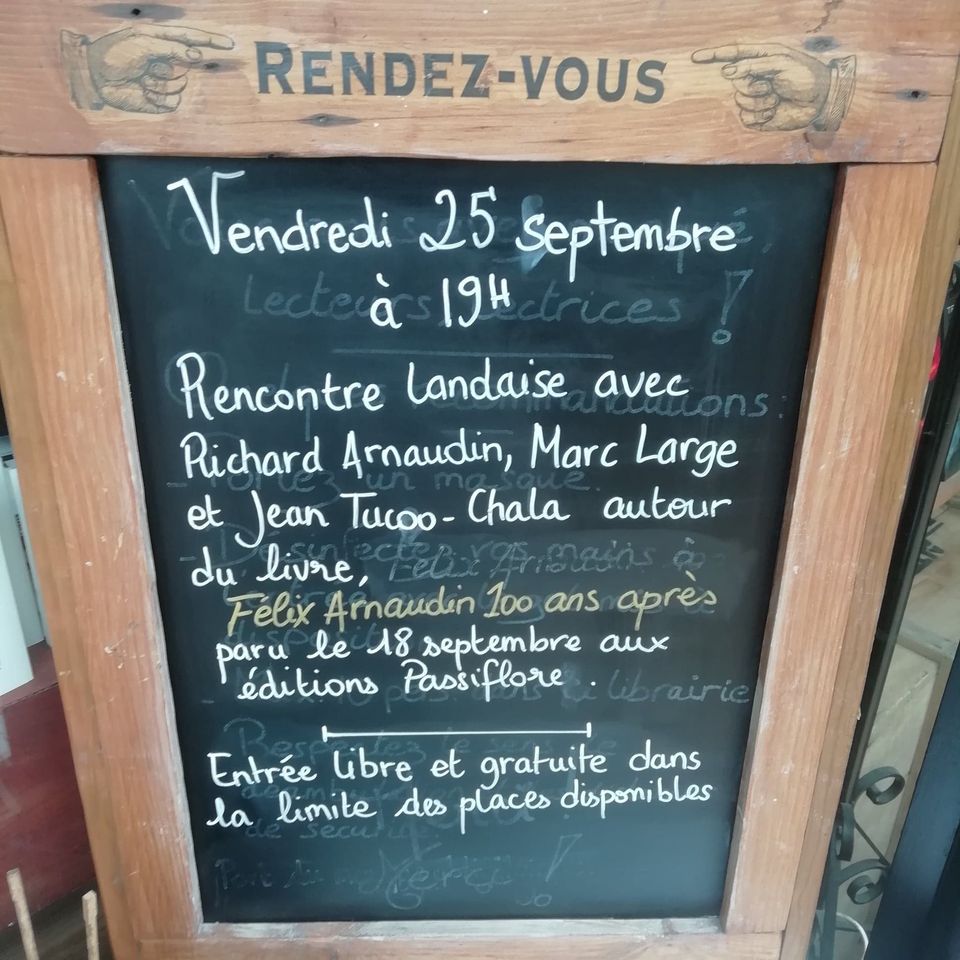 RENDEZ-VOUS
Vendredi 25 septembre
à 19H
Rencontre landaise avec
Richard Arnaudin, Marc Large
et Jean Tucoo-Chala autour
du livre,
Félix Arnaudin 100 ans après
paru le 18 septembre aux
éditions Passiflore.
Entrée libre et gratuite dans
la limite des places disponibles